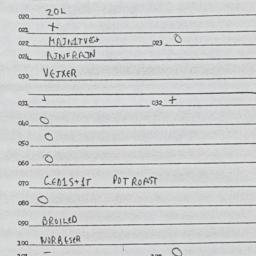 020 20L
021 +
022 MAJNITVEY 023 O
024 AJNFRAJN
030 VEJXER
031 1 032 +
040 O
050 O
060 O
070 GED1S+1T POT ROAST
080 O
090 BROILED
100 NORBESER